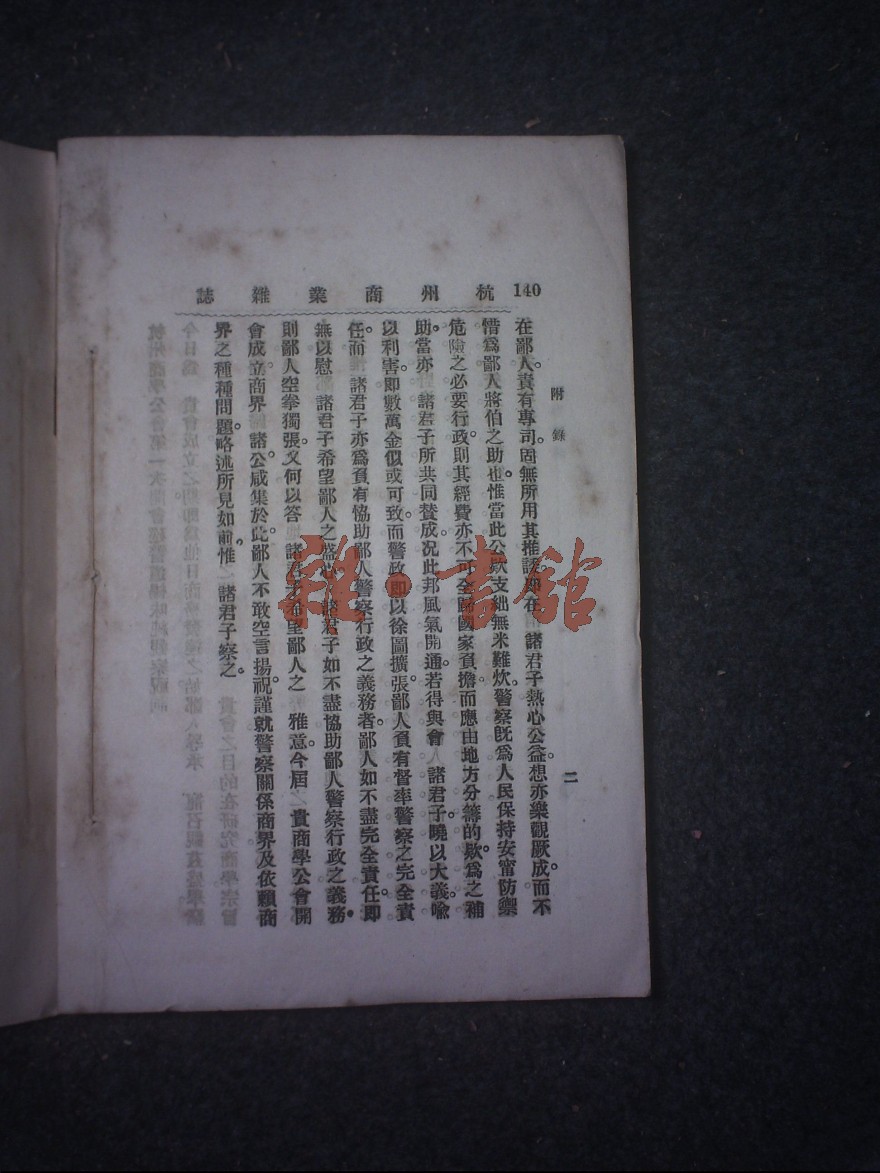 140 杭州商業雜誌
附錄
二
在鄙人責有專司。固無所用其推諉。即在 諸君子熱心公益。想亦樂觀厥成。而不
惜爲鄙人將伯之助也。惟當此公欵支絀。無米難炊。警察旣爲人民保持安甯。防禦
危險之必要行政。則其經費亦不可全歸國家負擔。而應由地方分籌的欵。爲之補
助。當亦 諸君子所共同贊成。况此邦風氣開通。若得與會 諸君子曉以大義。喩
以利害。即數萬金似或可致。而警政即以徐圖擴張。鄙人負有督率警察之完全責
任。而 諸君子亦爲負有協助鄙人警察行政之義務者。鄙人如不盡完全責任。即
無以慰 諸君子希望鄙人之盛心。諸君子如不盡協助鄙人警察行政之義務。
則鄙人空拳獨張。又何以答 諸君子希望鄙人之 雅意。今屆 貴商學公會開
會成立。商界 諸公咸集於此。鄙人不敢空言揚祝。謹就警察關係商界及依賴商
界之種種問題。略述所見如前。惟 諸君子察之。
雜·書館